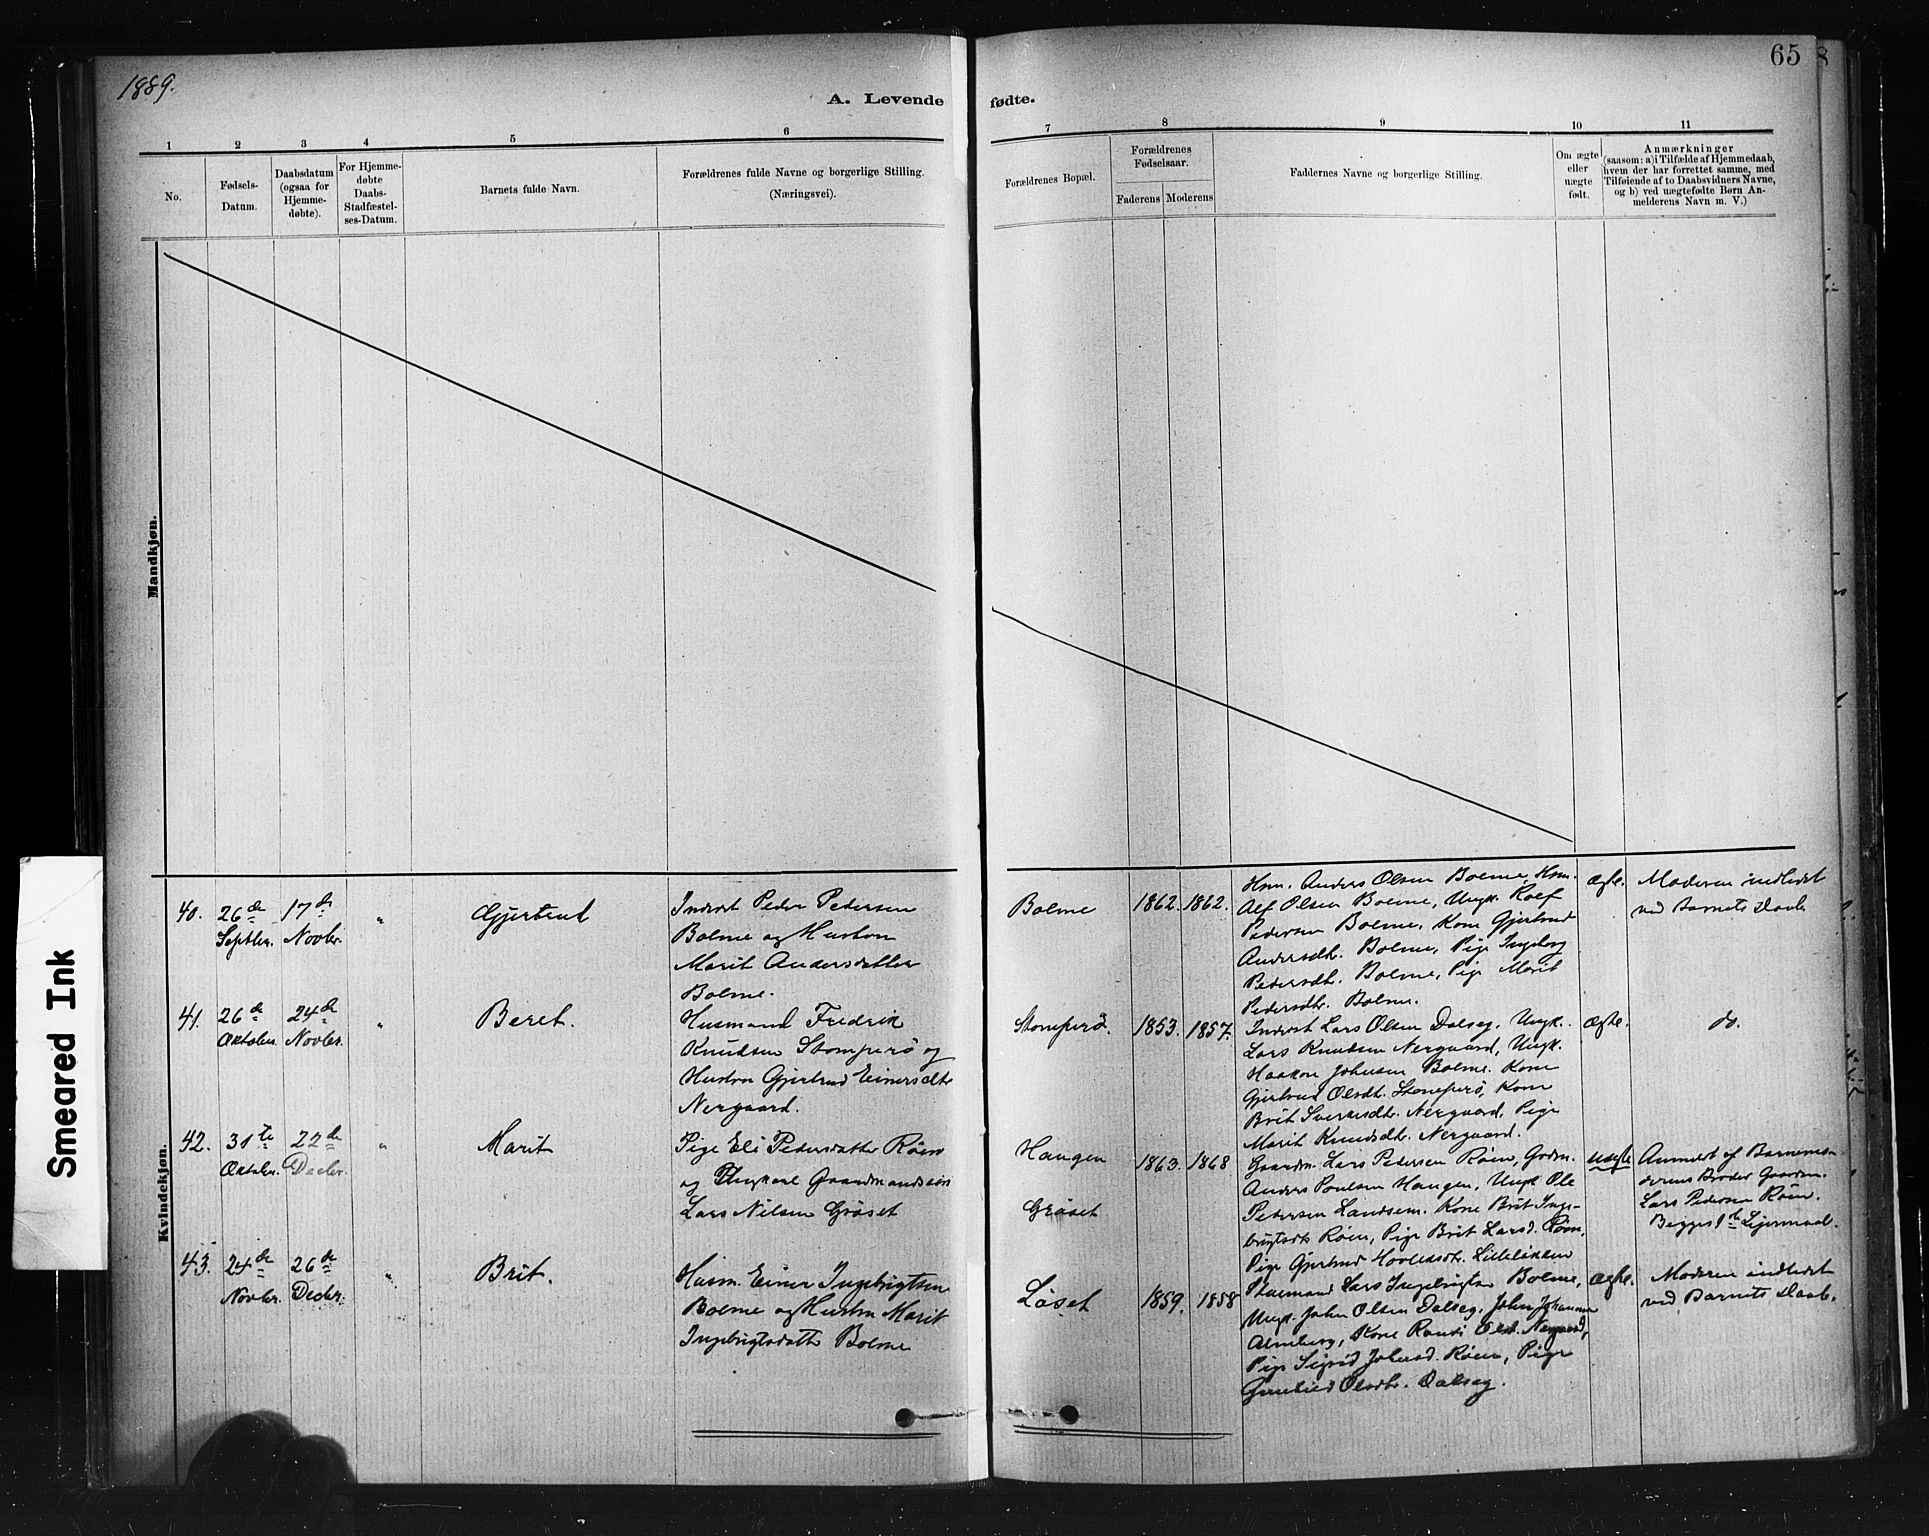 1889.
65
A. Levende fødte.
1 2 3 4 5 6 7 8 9 10 11
No.
Fødsels-
Datum.
Daabsdatum
(ogsaa for
Hjemme-
døbte).
For Hjemme-
døbte
Daabs-
Stadfæstel-
ses-Datum.
Barnets fulde Navn.
Forældrenes fulde Navne og borgerlige Stilling.
(Næringsvei).
Forældrenes Bopæl.
Forældrenes
Fødselsaar.
Faderens Moderens
Faddernes Navne og borgerlige Stilling.
Om ægte
eller
uægte
født.
Anmærkninger
(saasom: a) i Tilfælde af Hjemmedaab,
hvem der har forrettet samme, med
Tilføiende af to Daabsvidners Navne,
og b) ved uægtefødte Børn An-
melderens Navn m. V.)
Mandkjøn.
Kvindekjøn.
Smeared Ink
40.
26de
Septbr.
17de
Novbr.
"
Gjertrud
Inderst Peder Pedersen
Bolme og Hustru
Marit Andersdatter
Bolme.
Bolme
1862. 1862.
Hsm. Anders Olsen Bolme, Hsm.
Alf Olsen Bolme, Ungk. Roef
Pedersen Bolme, Kone Gjertrud
Andersdtr. Bolme, Pige Ingeborg
Pedersdtr. Bolme, Pige Marit
Pedersdtr. Bolme.
Ægte.
Moderen indledet
ved Barnets Daab
41.
26de
Oktober.
24de
Novbr.
"
Beret.
Husmand Fredrik
Knudsen Stomperø og
Hustru Gjertrud Einersdtr
Nergaard.
Stomperø.
1853. 1857.
Inderst Lars Olsen Dalseg, Ungk.
Lars Knudsen Nergaard, Ungk.
Haakon Johnsen Bolme. Kone
Gjertrud Olsdtr. Stomperø, Kone
Brit Sversdtr. Nergaard, Pige
Marit Knudsdtr. Nergaard.
Ægte.
do.
42.
31te
Oktober.
22de
Decbr.
"
Marit
Pige Eli Pedersdatter Røen
og Ungkarl Gaardmandssøn
Lars Nilsen Grøset
Haugen
Grøset
1863. 1868
Gaardm. Lars Pedersen Røen, Gdm.
Anders Poulsen Haugen, Ungk Ole
Pedersen Landsem. Kone Brit Inge-
brigtsdtr Røen, Pige Brit Larsd. Røen,
Pige Gjertrud Lilleløkken
uægte
Anmeldt af Barnemo-
derens Broder Gaardm.
Lars Pedersen Røen.
Begges 1ste Leiermaal.
43.
24de
Novbr.
26de
Decbr.
"
Brit.
Husm. Einer Ingebrigtsen
Bolme og Hustru Marit
Ingebrigtsdatter Bolme
Løset
1859. 1858
Lars Ingebrigtsen Bolme,
Ungk. John Olsen Dalseg, John Johannsen
Almberg, Kone Randi Olsd. Nergaard,
Pige Sigrid Johnsd. Røen, Pige
Gunhild Olsdtr. Dalseg.
Ægte.
Moderen indledet
ved Barnets Daab.